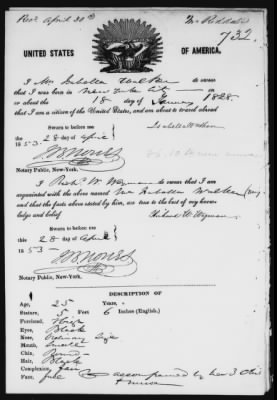 Rec. April 30th
732.
UNITED STATES OF AMERICA.
I Mrs Isabella Walker do swear
that I was born in New York City on
or about the 18 day of January 1828.
that I am a citizen of the United States, and am about to travel abroad
Return to before me
this 28 day of April
1853.
Isabella Walker
Notary Public, New-York.
I Richd. W do swear that I am
acquainted with the above named Mrs Isabella Walker
and that the facts above stated by him, are true to the best of my know-
ledge and belief
Return to before me
this 28 day of April
1853
Notary Public, New-York.
DESCRIPTION OF
Age, 25 Years,
Stature, 5 Feet 6 Inches (English.)
Forehead, High
Eyes, Black
Nose, Ordinary Size
Mouth, Small
Chin, Round
Hair, Black
Complexion, fair
Face, full
accompanied by her 3